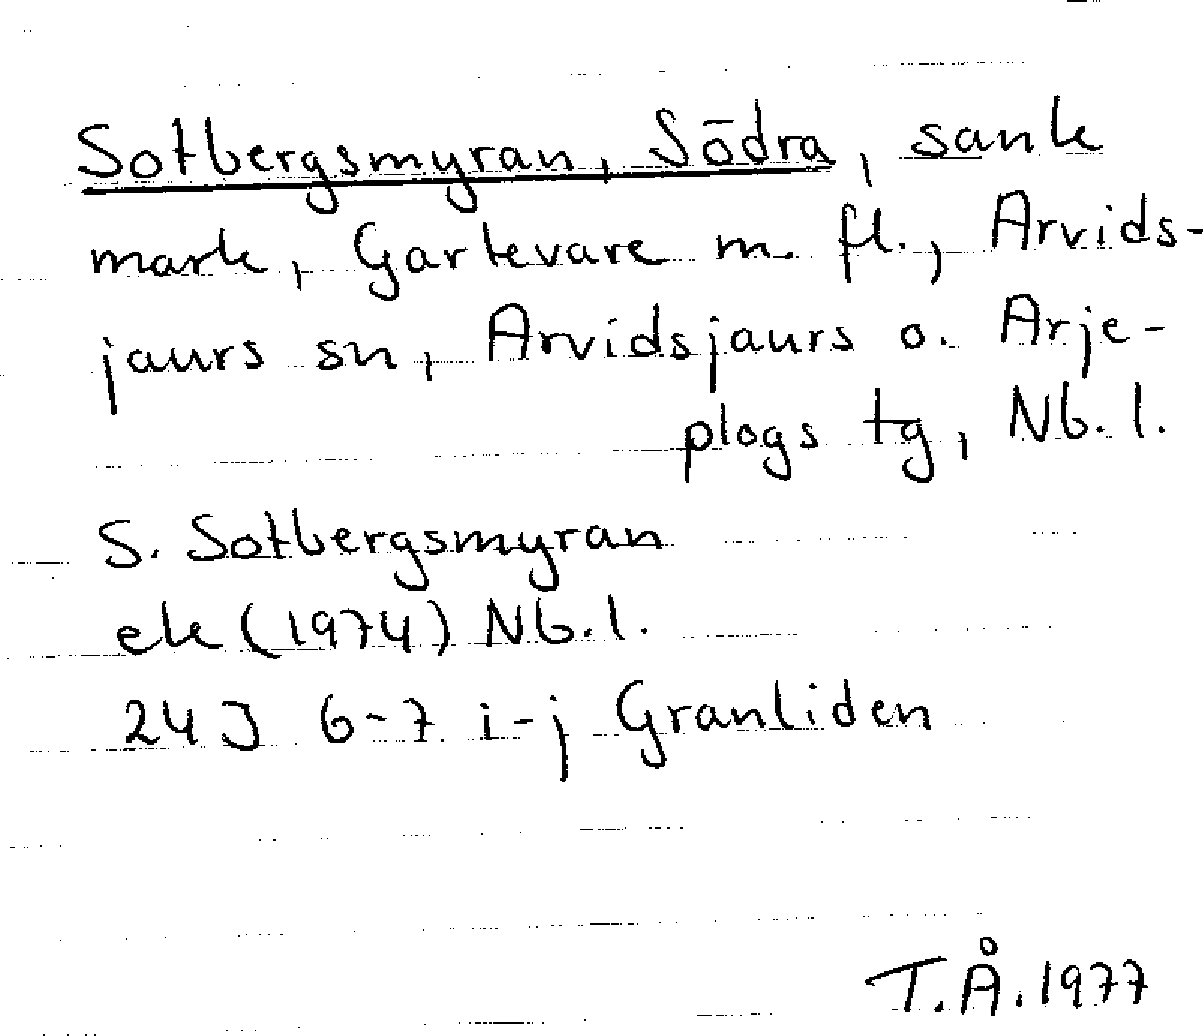 Sotbergsmyran, Södra, sank
mark, Gartevare m. fl., Arvids-
jaurs sn, Arvidsjaurs o. Arje-
plogs tg, Nb. l.
S. Sotbergsmyran
ek (1974) Nb. l.
24 J 6-7 i-j Granliden
T.Å. 1977